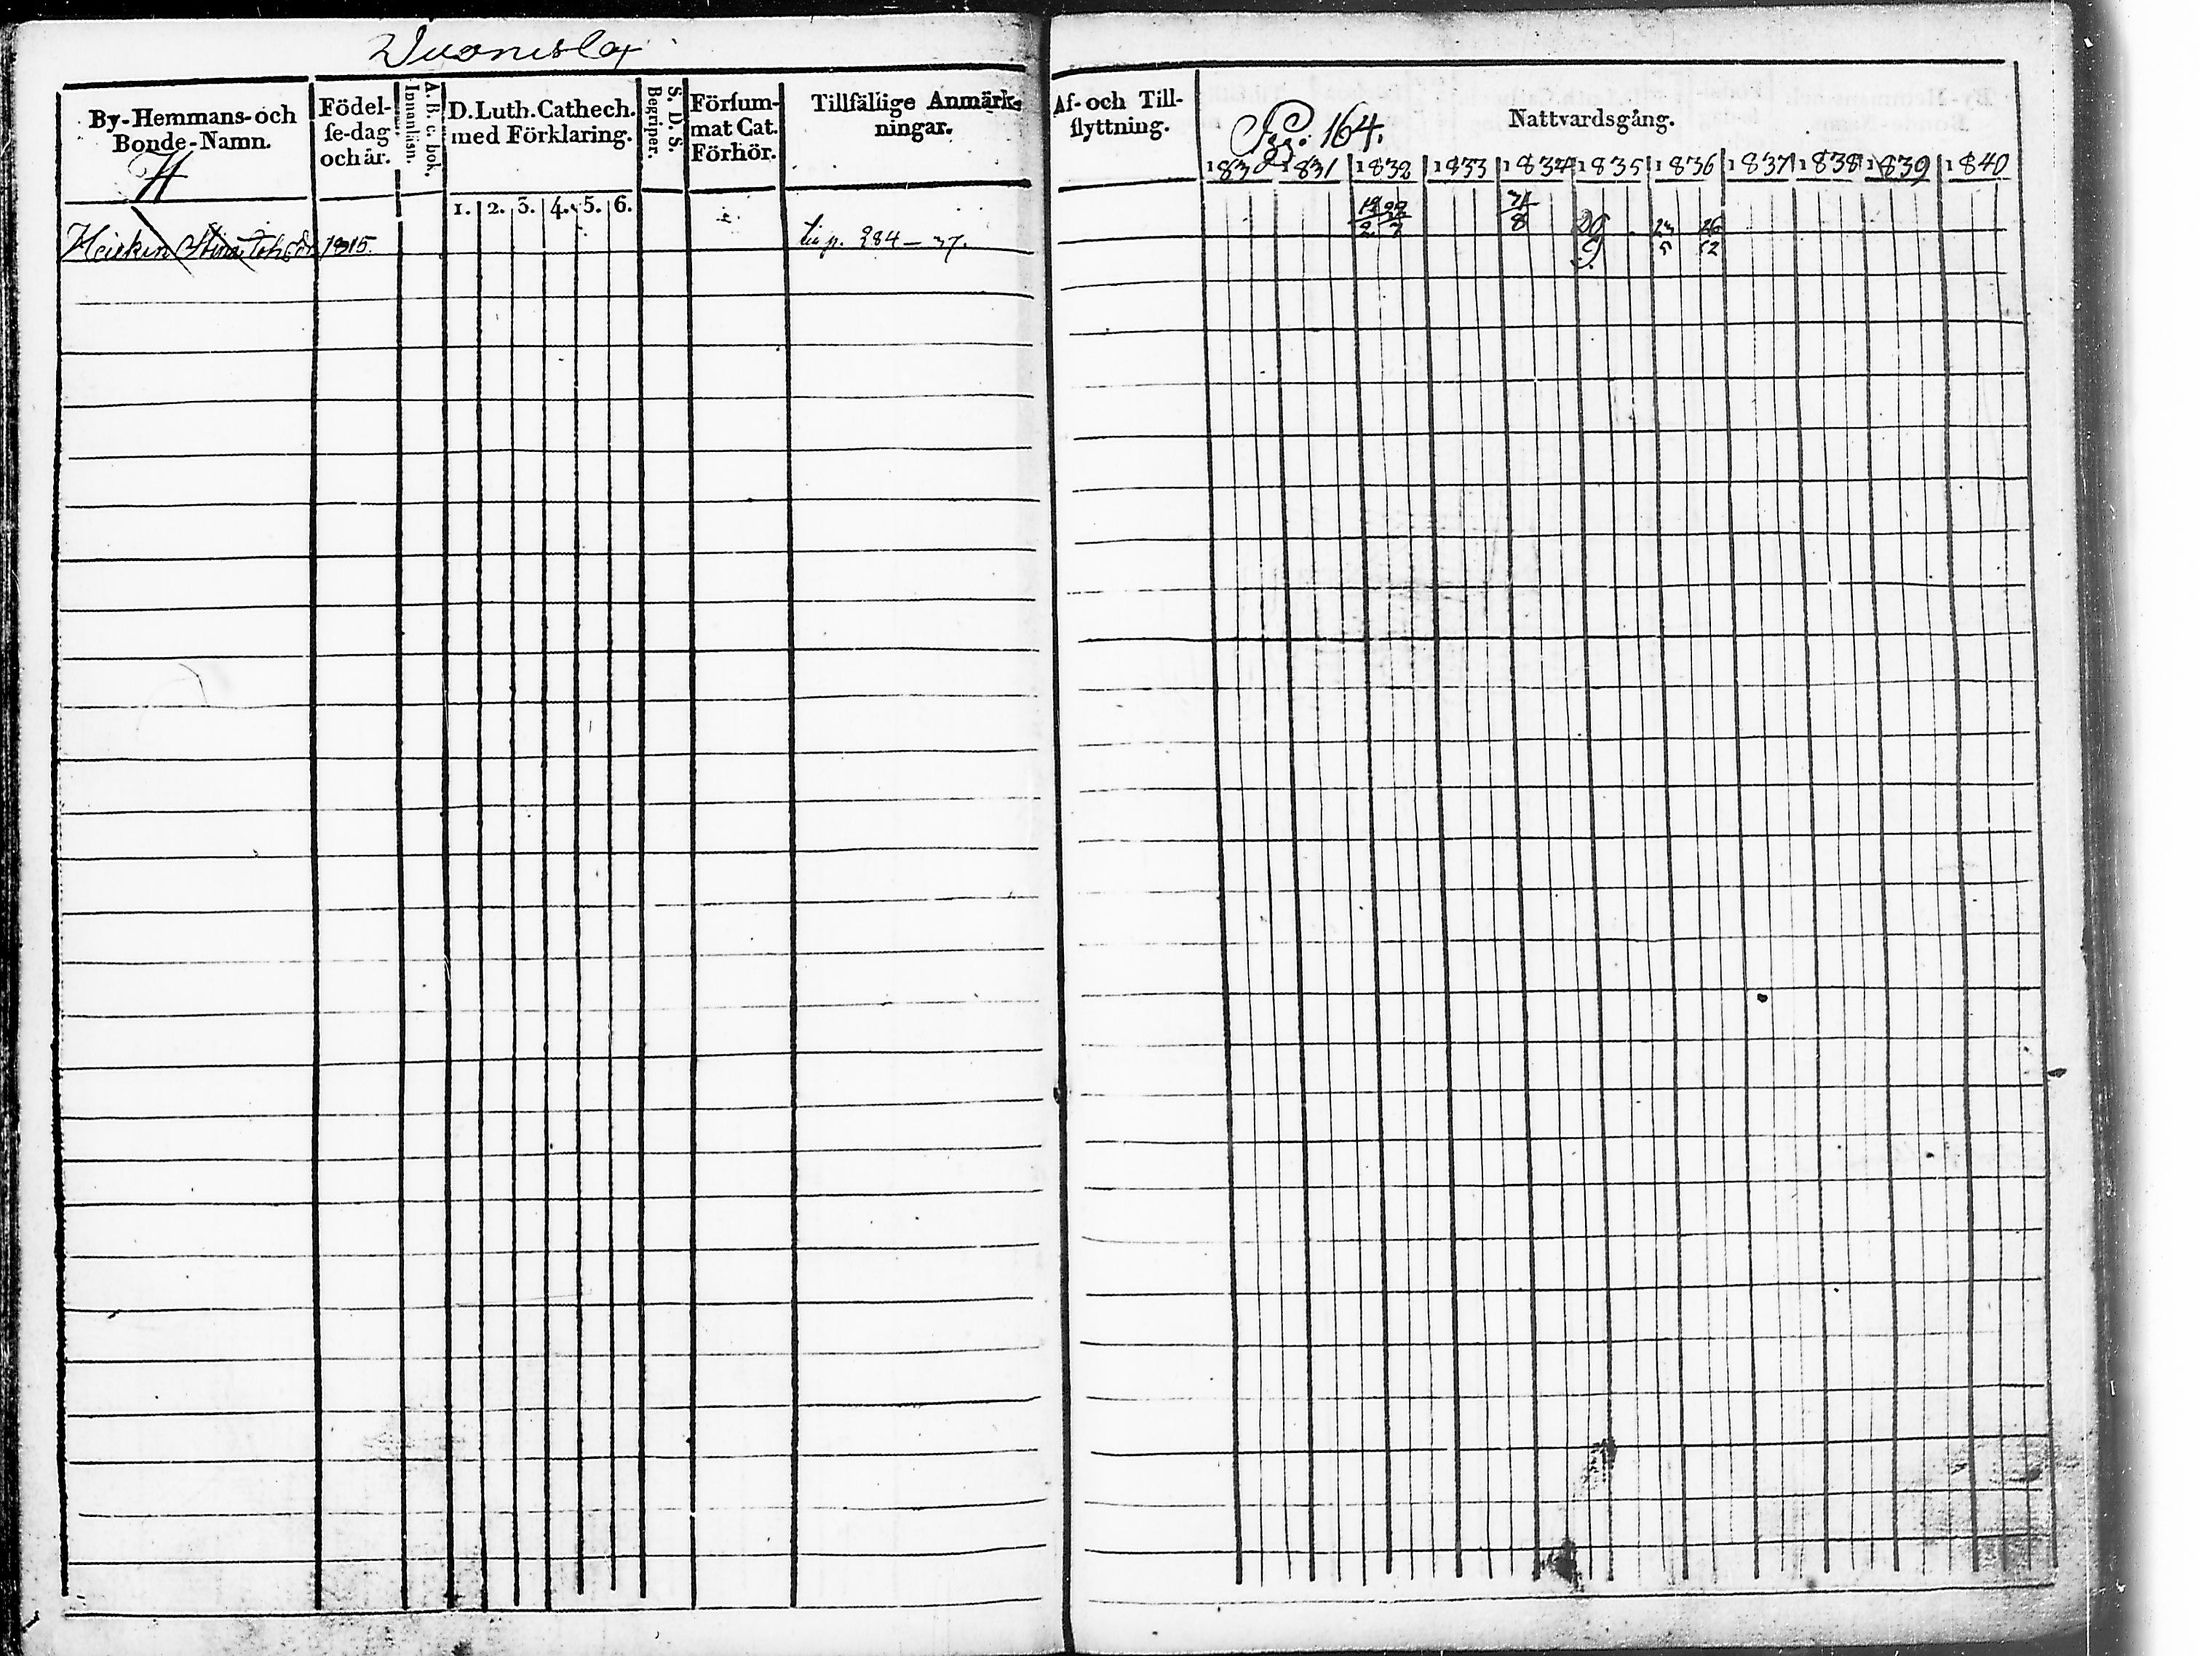 By-Hemmans- och
Bonde-Namn.
H
Födel-
se-dag
och år.
A. B. c. bok.
Innanläsn.
D. Luth. Cathech.
med Förklaring.
1. 2. 3. 4. 5. 6.
S. D. S.
Begriper.
Försum-
mat Cat.
Förhör.
Tillfällige Anmärk-
ningar.
Stina 1815.
p. 284 - 37.
Af- och Till-
flyttning.
Pag. 164.
Nattvardsgång.
1830 1831 1832 1833 1834 1835 1836 1837 1838 1839 1840
8 26 23 26
9 5 12